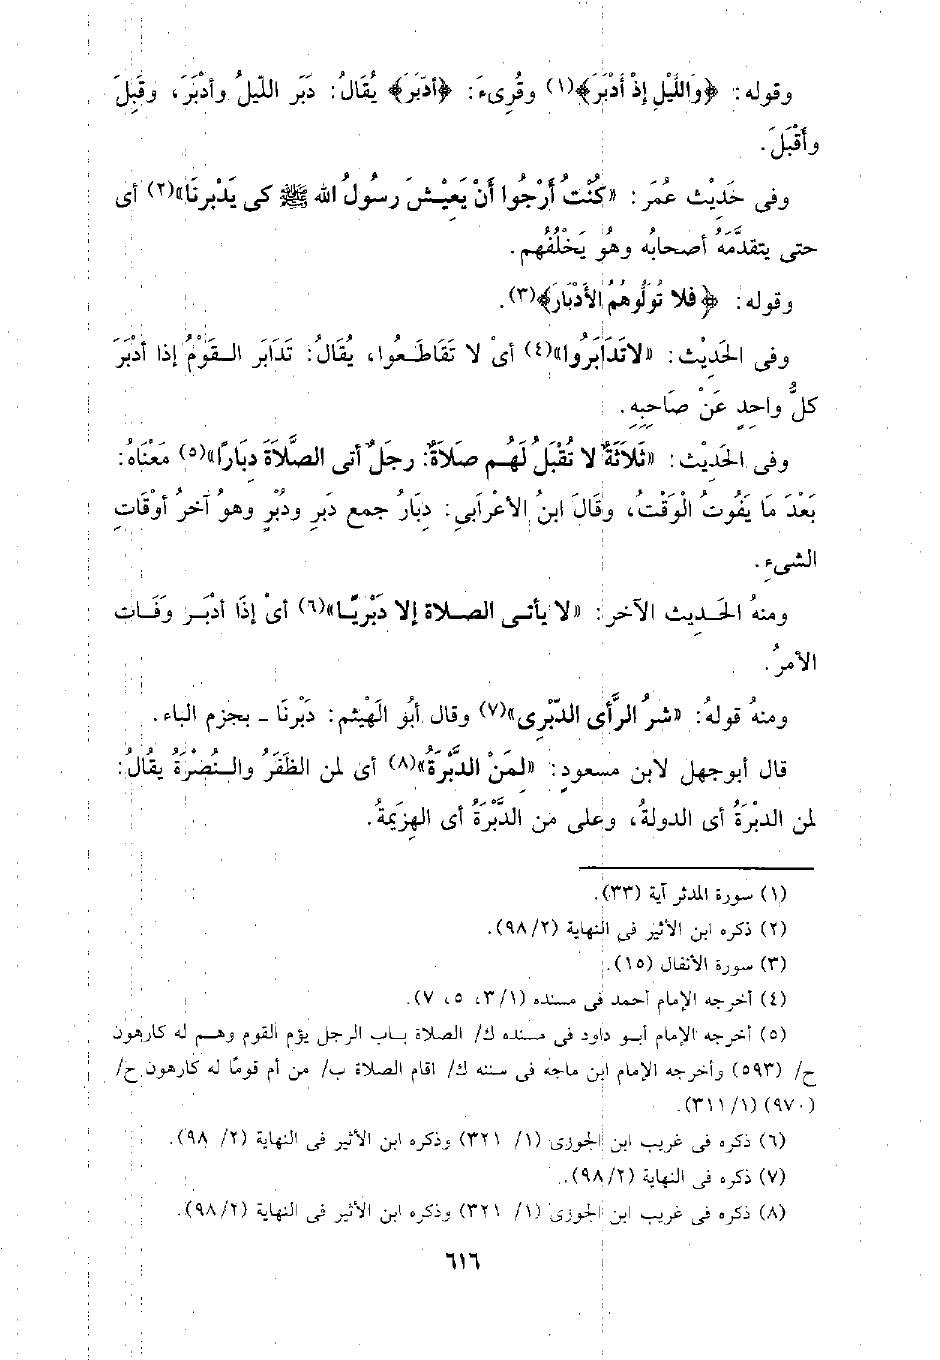 وقوله: ﴿وَاللَّيْلِ إِذْ أَدْبَرَ﴾(١) وقُرِىءَ: ﴿أدّبَرَ﴾ يُقَالُ: دَبَر اللّيلُ وأدْبَرَ، وقَبِلَ
وأَقْبَلَ.
وفى حَدِيْث عُمَر: «كُنْتُ أَرْجُوا أَنْ يَعِيْشَ رسُولُ الله ﷺ كى يَدْبرنَا»(٢) أى
حتى يتقدَّمَهُ أصحابُه وهُو يَخْلُفُهم.
وقوله: ﴿فلا تُوَلُّوهُمُ الأَدْبَارَ﴾(٣).
وفى الحَدِيْث: «لاتَدَابَرُوا»(٤) أىْ لا تَقَاطَعُوا، يُقَالُ: تَدَابَر القَوْمُ إذا أدْبَرَ
كلُّ واحِدٍ عَنْ صَاحِبِهِ.
وفى الحَدِيْث: «ثَلاَثَةٌ لا تُقْبَلُ لَهُم صَلاَةٌ: رجَلٌ أتى الصَّلاَةَ دِبَارًا»(٥) مَعْنَاهُ:
بَعْدَ مَا يَفُوتُ الْوَقْتُ، وقَالَ ابنُ الأعْرابَي: دِبَارُ جمع دَبَرِ ودُبْرٍ وهوُ آخرُ أوْقَاتِ
الشىءِ.
ومنهُ الحَديث الآخر: «لا يأتى الصلاة إلا دَبْريًا»(٦) أىْ إذَا أدْبَر وَفَات
الأمرُ.
ومنهُ قولهُ: «شرُ الرَّأى الدّبْرِى»(٧) وقال أبُو الهَيْثم: دَبْرنَا - بجزم الباء.
قال أبوجهل لابن مسعودٍ: «لِمَنْ الدَّبْرَةُ»(٨) أى لمن الظَفَرُ والنُصْرَةُ يقالُ:
لمن الدبْرَةُ أى الدولةُ، وعلى من الدَّبْرَةُ أى الهزِيَمةُ.
(١) سورة المدثر آية (٣٣).
(٢) ذكره ابن الأثير فى النهاية (٩٨/٢).
(٣) سورة الأنفال (١٥).
(٤) أخرجه الإمام أحمد فى مسنده (٣/١، ٥، ٧).
(٥) أخرجه الإمام أبو داود فى مسنده ك/ الصلاة باب الرجل يؤم القوم وهم له كارهون
ح/ (٥٩٣) وأخرجه الإمام ابن ماجه فى سننه ك/ اقام الصلاة ب/ من أم قومًا له كارهون ح/
(٩٧٠) (٣١١/١).
(٦) ذكره فى غريب ابن الجوزى (١/ ٣٢١) وذكره ابن الأثير فى النهاية (٢/ ٩٨).
(٧) ذكره فى النهاية (٩٨/٢).
(٨) ذكره فى غريب ابن الجوزى (١/ ٣٢١) وذكره ابن الأثير فى النهاية (٩٨/٢).
٦١٦